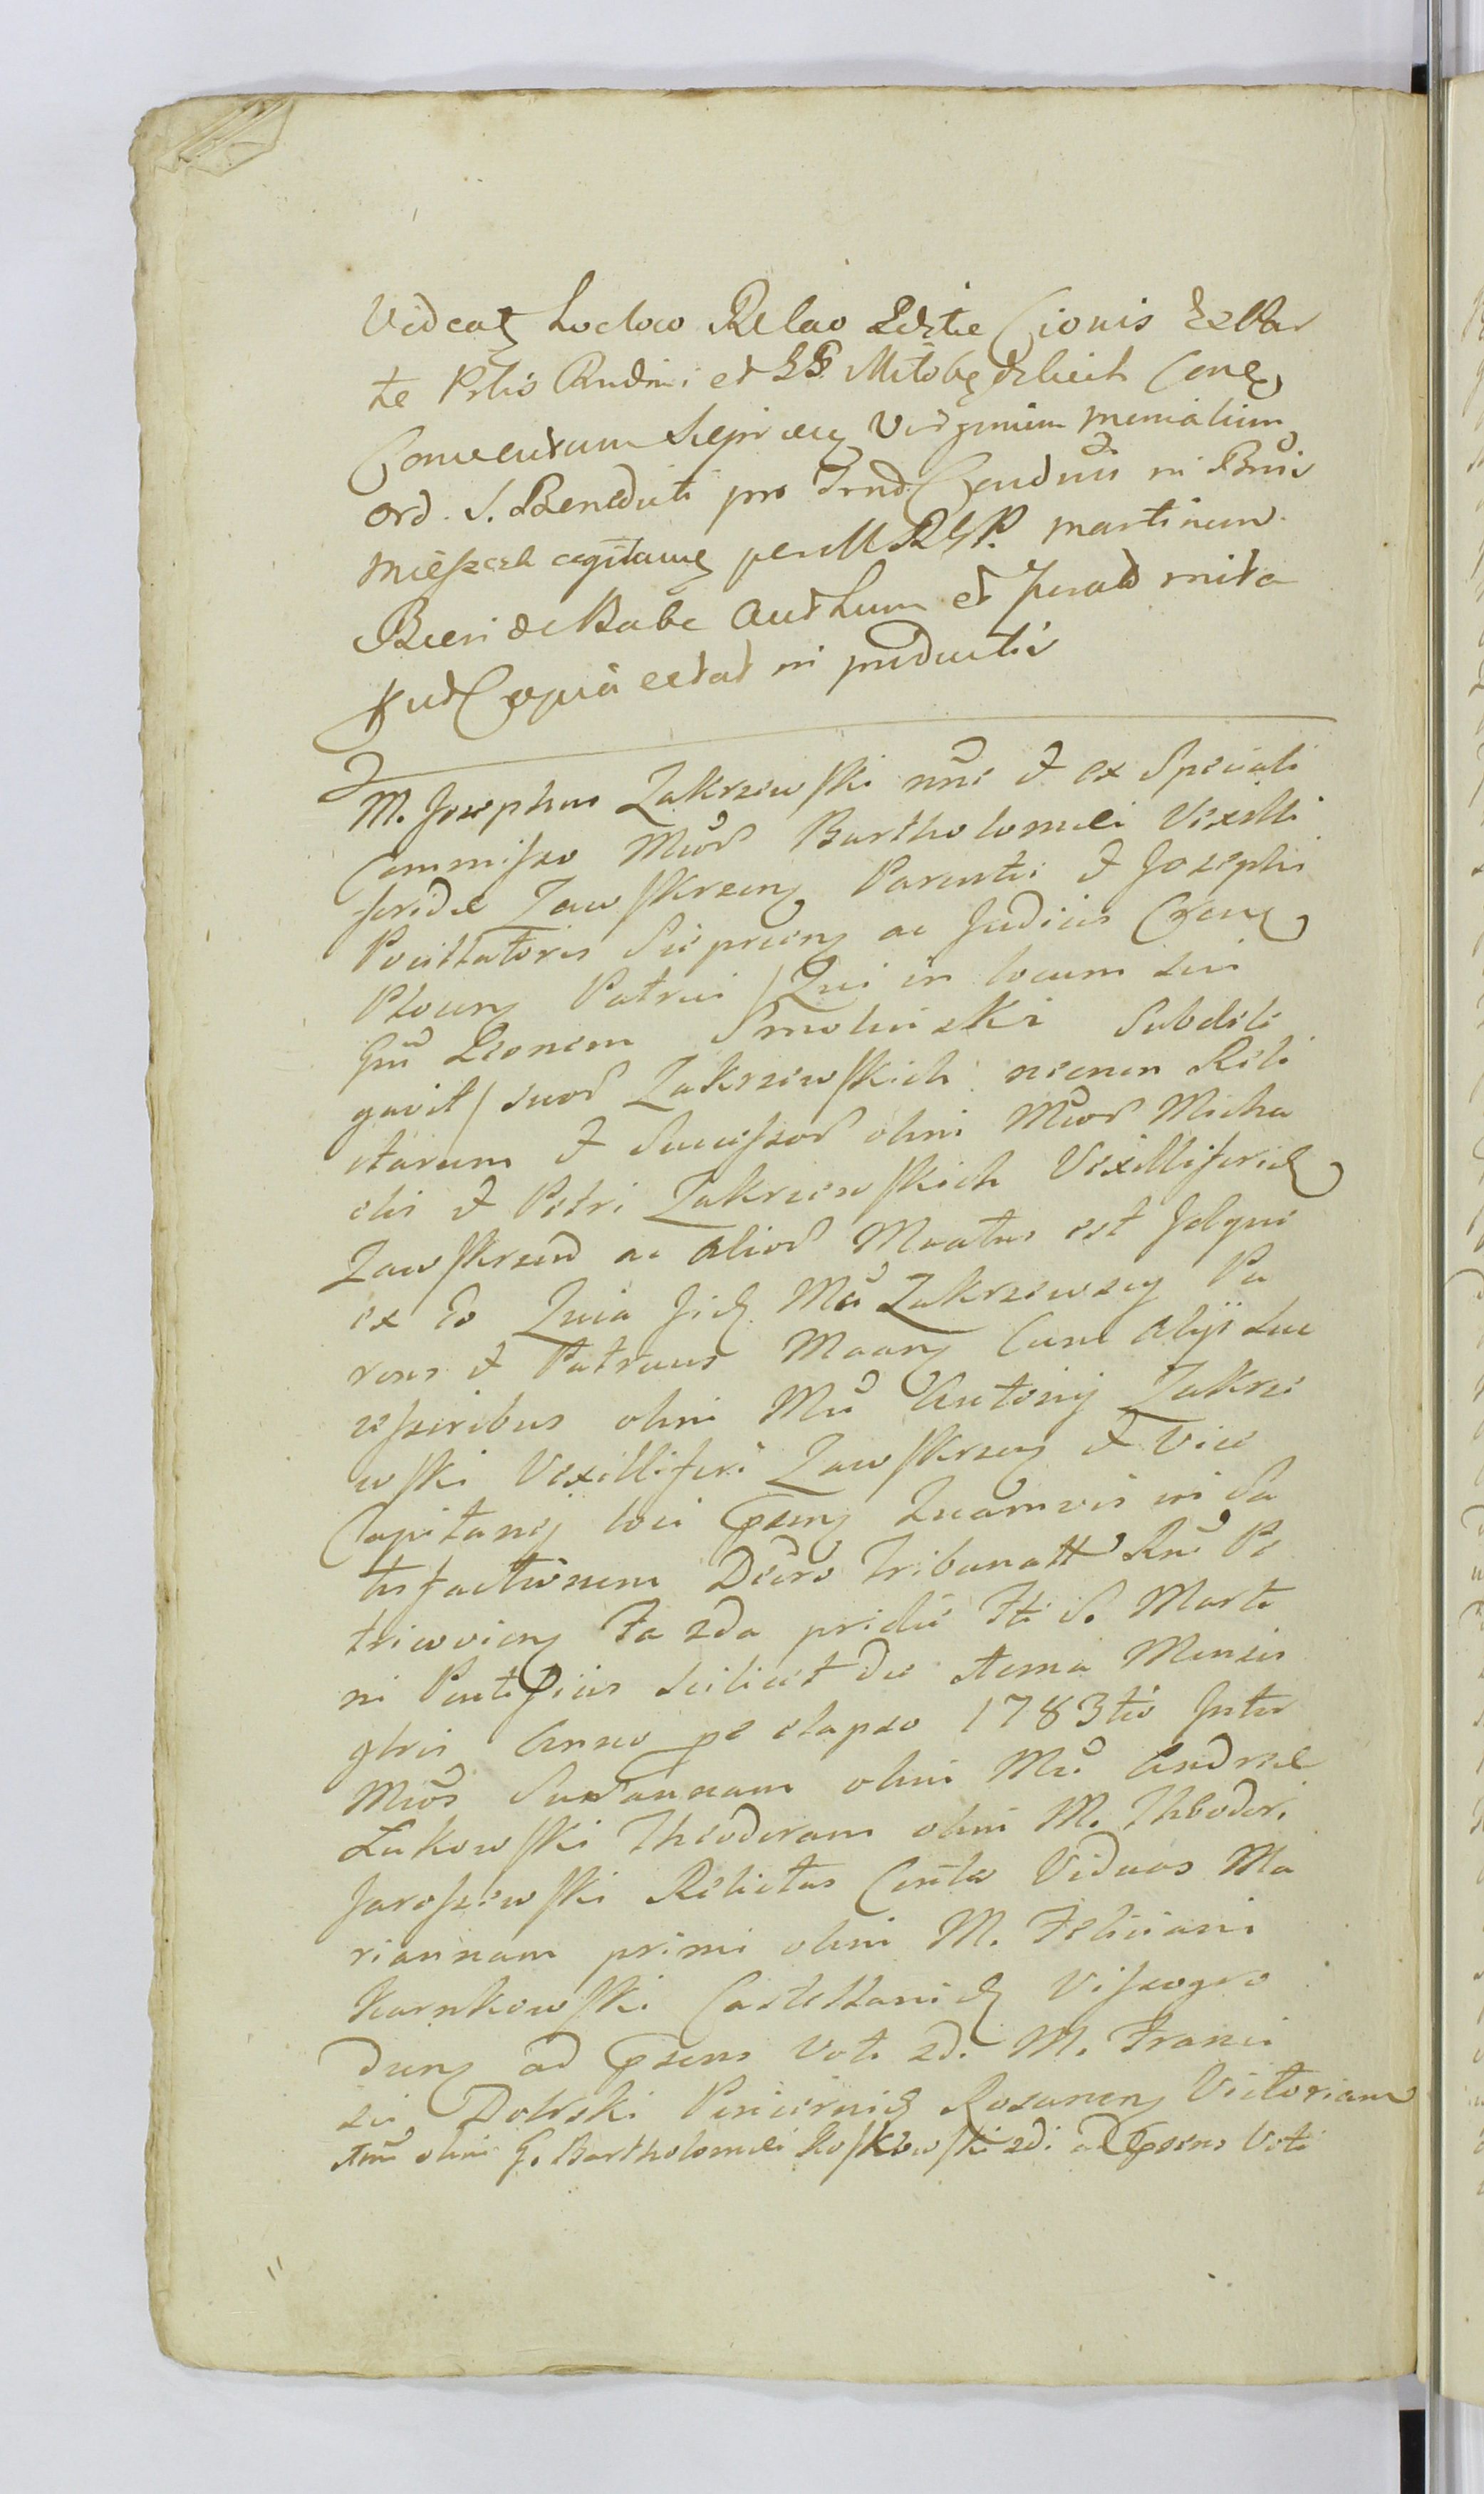 Videatz hocloco Relao Edztie Cionis Ex Par
te Prlis Andmi et SS. Mitobę delicit Conez
Conventum Sieprceny Virginum monialium
Ord. S. Benedicti pro Trnd Cendnũ in Bnis
Miessczk agitanez per M R G P. Martinum
Bieri de Babe Authum et Jurato mita
put Copia extat in productis
M. Josephus Zakrzewski nne & ex Speciali
Commisso Mcor Bartholomei Vexilli
feridae Zawskrzeny Parentis & Josephi
Pocillatoris Sieprceny ac Judicis Crane
Plocens Patrui / Qui in locum sui
Gnũ Leonem Smolinski Subdele
gavit / suor Zakrzewskich necnon Reli
ctarum & Successor olim Mcor Micha
elis & Petri Zakrzewskich Vexilliferid
Zawskrzen ac alior Maatus est Selgne
ex eo Quia Jid Mci Zakrzewscy Pa
rens & Patruus Maany Cum alijs suc
cessoribus olim Mci Antonij Zakrze
wski Vexilliferi Zawskrzeny & Vice
Capitanej loci psens Quamvis in Sa
tisfactionem Decro Tribunall Rni Pe
tricovieny Fa 2da pridie Fti S. Marti
ni Pontificis Scilicet die xtema Mensis
9bris Anno pe elapso 1783tio Inter
Mcos Susannam olim Mci Andreae
Lukowski Theodoram olim M. Theodori
Jaroszewski Relictas Censtes Viduas Ma
riannam primi olim M. Feliciani
Karnkowski Castellanid Viszogro
diens ad psens Voti 2di M. Franci
sci Dolrski Pincernid Rosaneny Victoriam
xtmi olim G. Bartholomei Koskowski 2di ad psens Voti